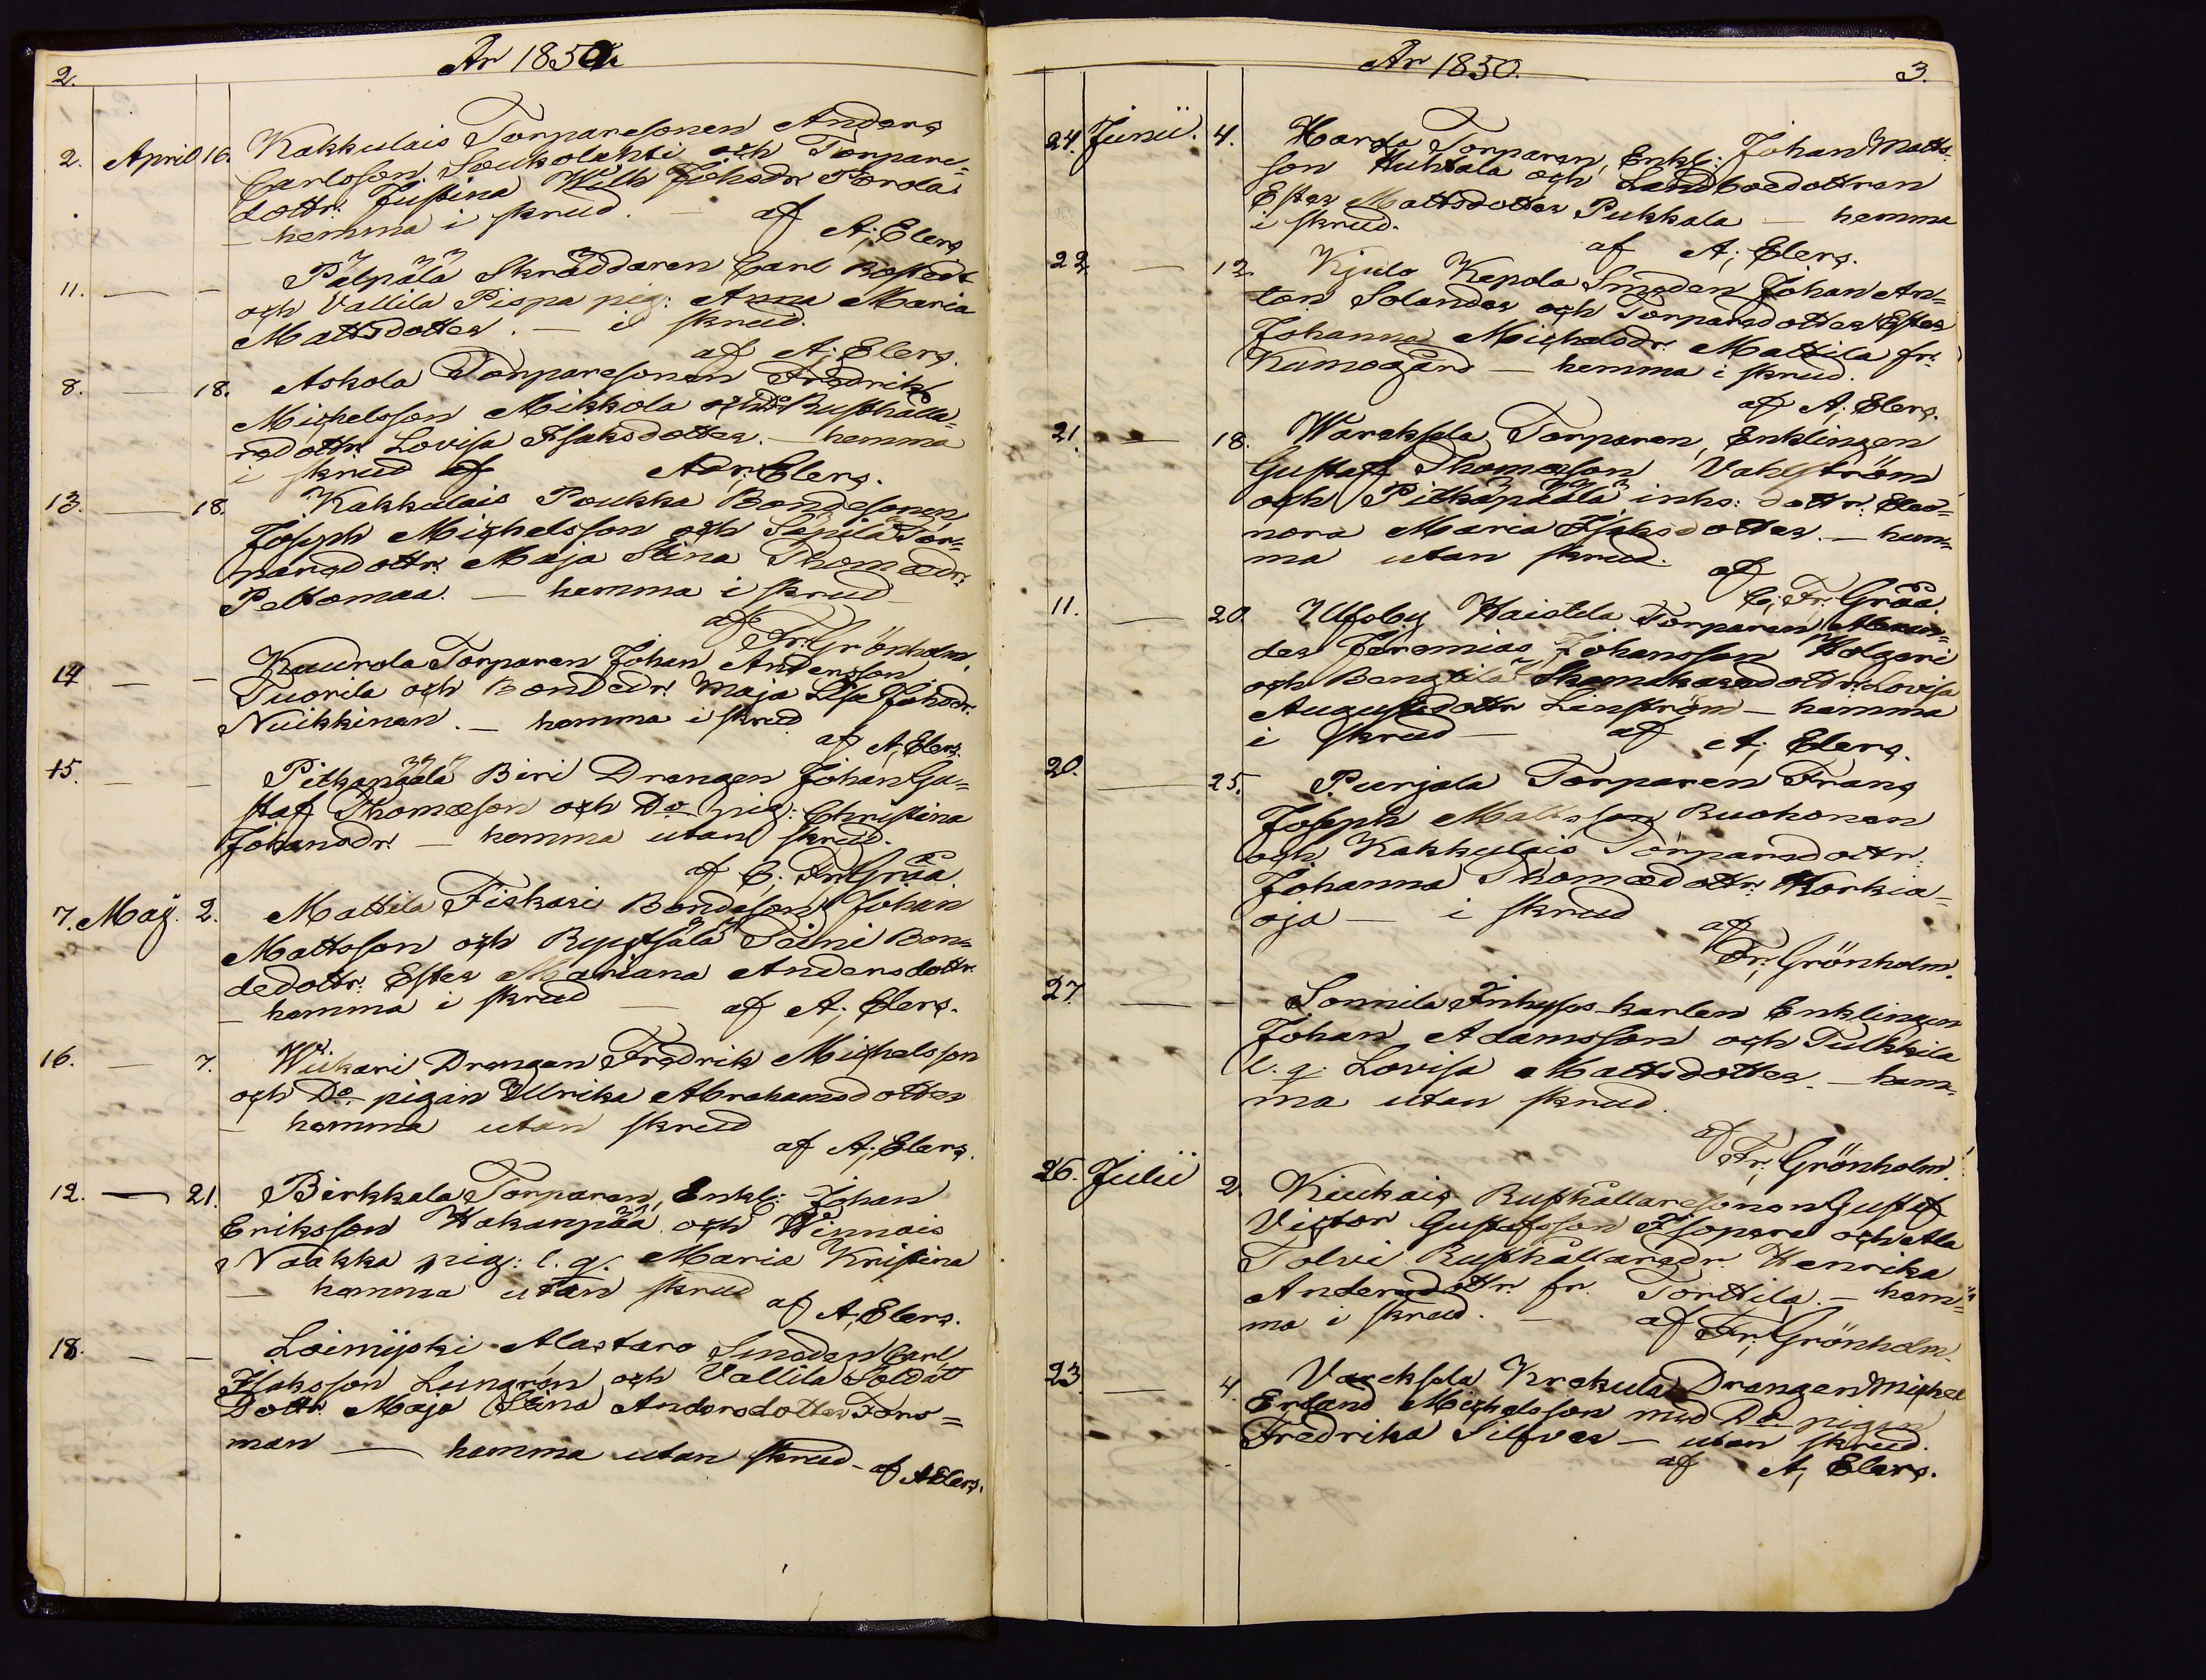 2.
År 1850.
2. April 16. Kakkulais Torparesonen Anders
Carlsson Soukolahti och Torpare-
dottr: Justina Wilh: Johsdr
— hemma i skrud. — af A; Elers
11. — — Pälpälä Skräddaren Carl Bostedt
och Vallila Pispa pig: Anna Maria
Mattsdotter. — i skrud.
af A; Elers.
8. — 18. Askola Torparesonen Fredrik
Michelsson Mikkola och Do Rusthålla-
redottr: Lovisa Isaksdotter. — hemma
i skrud af Adr: Elers.
13. — 18. Kakkulais Poukka Bondesonen
Joseph Michelsson och Säpilä Tor-
paredottr: Maja Stina Thomædr:
Peltomaa. — hemma i skrud
af Fr: Grönholm.
14 — — Kaurola Torparen Johan Andersson
Tuorila och Bondedr: Maja Lisa Johsdr.
Nuikkinen. — hemma i skrud
af A; Elers.
15. — — Pitkäpäälä Biri Drengen Johan Gu-
staf Thomæson och Do pig: Christina
Johansdr: — hemma utan skrud.
af C. Fr: Gråå.
7. Maj. 2. Mattila Fiskari Bondeson Johan
Mattsson och Ryytsälä Teini Bon-
dedottr: Ester Mariana Andersdottr.
— hemma i skrud — af A; Elers.
16. — 7. Wiikari Drengen Fredrik Michelsson
och Do pigan Ullrika Abrahamsdotter
— hemma utan skrud
af A; Elers.
12. — 21. Birkkala Torparen, Enkl: Johan
Eriksson Hakanpää och Winnais
Naakka pig: l. q. Maria Kristina
— hemma utan skrud
af A; Elers.
18. — — Loimijoki Alastaro Smeden Carl
Isaksson Lungrén och Vallila Soldat
Dottr: Maja Stina Andersdotter Fors-
man — hemma utan skrud — af A Elers.
År 1850.
3.
24. Junii. 4. Harola Torparen, Enkl: Johan Matts-
son Huhtala och Landboedottren
Ester Mattsdotter Pukkala — hemma
i skrud.
af A; Elers.
22. — 12. Kjulo Kepola Smeden Johan An-
ton Solander och Torparedotter Ester
Johanna Michelsdr. Mattila fr:
Kumogård — hemma i skrud.
af A; Elers.
21. — 18. Torparen, Enklingen
Gustaf Thomæson Vahlström
och Pitkäpäälä inhs: dottr: Eleo-
nora Maria Isaksdotter. — hem-
ma utan skrud.
af
C; Fr: Gråå.
11. — 20. Ulfsby Haistila Torparen Alexan-
der Jeremias Johansson Holgeri
och Bengtilä Skomakaredottr: Lovisa
Augustsdottr Linström — hemma
i skrud — af A; Elers.
20. — 25. Purjala Torparen Frans
Joseph Mattsson Ruohonen
och Kakkulais Torparedottr:
Johanna Thomædottr: Korkia-
oja — i skrud
af
Fr; Grönholm.
27. — — Sonnila Inhyses-karlen Enklingen
Johan Adamsson och Tulkkila
l. q. Lovisa Mattsdotter. — hem-
ma utan skrud.
af
Fr; Grönholm.
26. Julii 2. Kiukais Rusthållaresonen Gustaf
Victor Gustafsson Isopere och Ala
Tolvi Rusthållaredr. Henrika
Andersdottr: fr. Torttila. — hem-
ma i skrud. — af Fr; Grönholm.
23. — 4. Krekula Drengen Michel
Erland Michelsson med Do pigan
Fredrika Silfver — utan skrud.
af A; Elers.